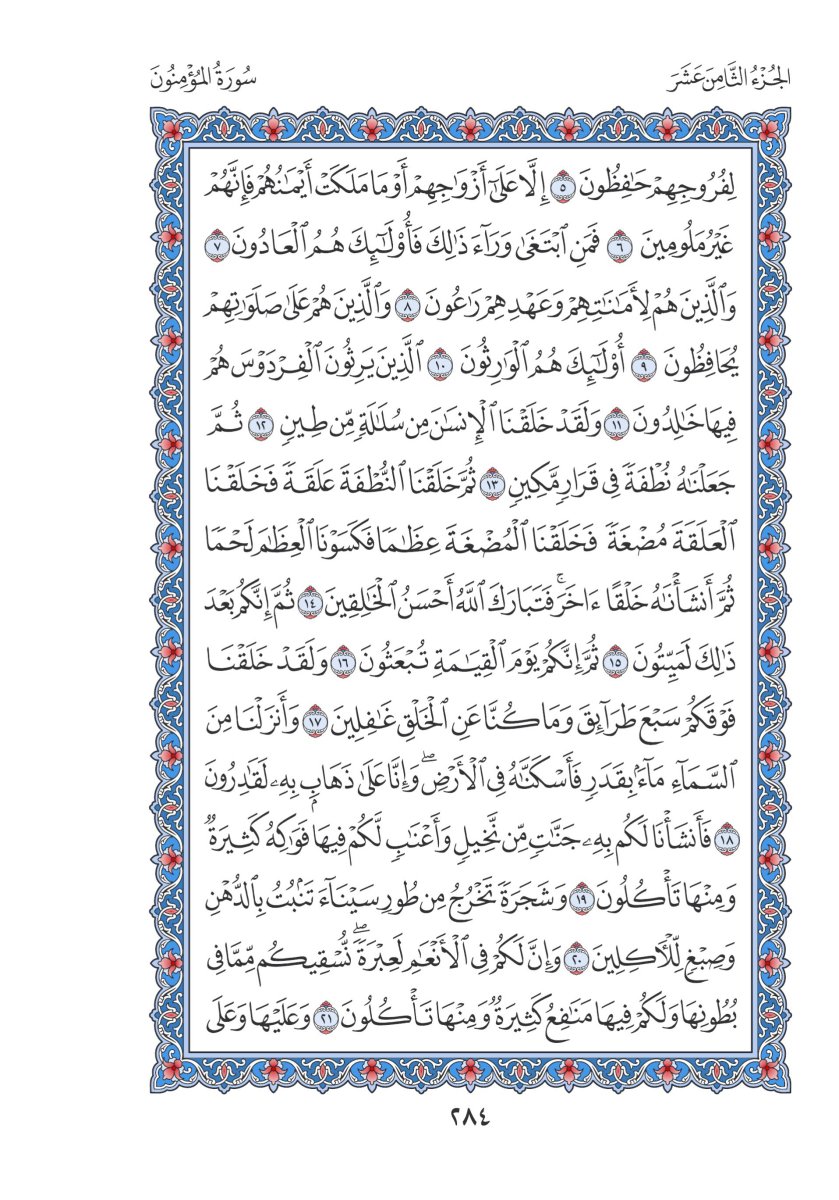 الجُزْءُ الثَّامِنَ عَشَرَ
سُورَةُ المُؤْمِنُونَ
لِفُرُوجِهِمْ حَٰفِظُونَ ٥ إِلَّا عَلَىٰٓ أَزْوَٰجِهِمْ أَوْ مَا مَلَكَتْ أَيْمَٰنُهُمْ فَإِنَّهُمْ
غَيْرُ مَلُومِينَ ٦ فَمَنِ ٱبْتَغَىٰ وَرَآءَ ذَٰلِكَ فَأُوْلَٰٓئِكَ هُمُ ٱلْعَادُونَ ٧
وَٱلَّذِينَ هُمْ لِأَمَٰنَٰتِهِمْ وَعَهْدِهِمْ رَٰعُونَ ٨ وَٱلَّذِينَ هُمْ عَلَىٰ صَلَوَٰتِهِمْ
يُحَافِظُونَ ٩ أُوْلَٰٓئِكَ هُمُ ٱلْوَٰرِثُونَ ١٠ ٱلَّذِينَ يَرِثُونَ ٱلْفِرْدَوْسَ هُمْ
فِيهَا خَٰلِدُونَ ١١ وَلَقَدْ خَلَقْنَا ٱلْإِنسَٰنَ مِن سُلَٰلَةٍ مِّن طِينٍ ١٢ ثُمَّ
جَعَلْنَٰهُ نُطْفَةً فِي قَرَارٍ مَّكِينٍ ١٣ ثُمَّ خَلَقْنَا ٱلنُّطْفَةَ عَلَقَةً فَخَلَقْنَا
ٱلْعَلَقَةَ مُضْغَةً فَخَلَقْنَا ٱلْمُضْغَةَ عِظَٰمًا فَكَسَوْنَا ٱلْعِظَٰمَ لَحْمًا
ثُمَّ أَنشَأْنَٰهُ خَلْقًا ءَاخَرَۚ فَتَبَارَكَ ٱللَّهُ أَحْسَنُ ٱلْخَٰلِقِينَ ١٤ ثُمَّ إِنَّكُم بَعْدَ
ذَٰلِكَ لَمَيِّتُونَ ١٥ ثُمَّ إِنَّكُمْ يَوْمَ ٱلْقِيَٰمَةِ تُبْعَثُونَ ١٦ وَلَقَدْ خَلَقْنَا
فَوْقَكُمْ سَبْعَ طَرَآئِقَ وَمَا كُنَّا عَنِ ٱلْخَلْقِ غَٰفِلِينَ ١٧ وَأَنزَلْنَا مِنَ
ٱلسَّمَآءِ مَآءًۢ بِقَدَرٍ فَأَسْكَنَّٰهُ فِي ٱلْأَرْضِۖ وَإِنَّا عَلَىٰ ذَهَابٍۭ بِهِۦ لَقَٰدِرُونَ
١٨ فَأَنشَأْنَا لَكُم بِهِۦ جَنَّٰتٍ مِّن نَّخِيلٍ وَأَعْنَٰبٍ لَّكُمْ فِيهَا فَوَٰكِهُ كَثِيرَةٌ
وَمِنْهَا تَأْكُلُونَ ١٩ وَشَجَرَةً تَخْرُجُ مِن طُورِ سَيْنَآءَ تَنۢبُتُ بِٱلدُّهْنِ
وَصِبْغٍ لِّلْأٓكِلِينَ ٢٠ وَإِنَّ لَكُمْ فِي ٱلْأَنْعَٰمِ لَعِبْرَةًۖ نُّسْقِيكُم مِّمَّا فِي
بُطُونِهَا وَلَكُمْ فِيهَا مَنَٰفِعُ كَثِيرَةٌ وَمِنْهَا تَأْكُلُونَ ٢١ وَعَلَيْهَا وَعَلَى
٢٨٤